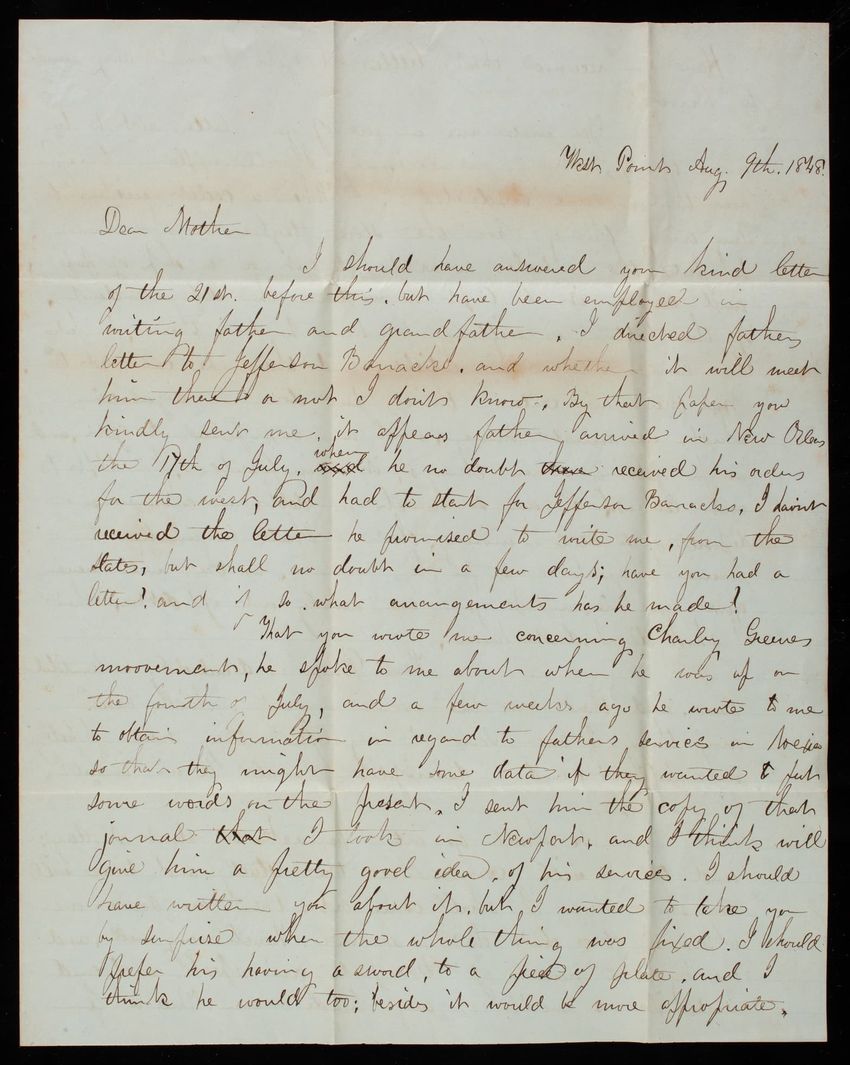 West Point Aug. 9th. 1848.
Dear Mother
I should have answered your kind letter
of the 21st. before this, but have been employed in
writing father and grandfather. I directed fathers
letter to Jefferson Barracks. and whether it will meet
him there or not I don't know. By that paper you
kindly sent me, it appears father arrived in New Orleans
the 17th of July, when he no doubt received his orders
for the west, and had to start for Jefferson Barracks, I havint
received the letter he promised to write me, from the
states, but shall no doubt in a few days; have you had a
letter? and if so. what arangements has he made?
What you wrote me concerning Charley Greenes
moovement, he spoke to me about when he was up on
the fourth of July, and a few weeks ago he wrote to me
to obtain information in regard to fathers services in Mexico
so that they might have some data if they wanted to put
some words on the present. I sent him the copy of that
journal that I took in Newport, and I think will
give him a pretty good idea, of his services. I should
have written you about it, but I wanted to take you
by surprise when the whole thing was fixed. I should
prefer his having a sword, to a piece of plate, and I
think he would too; besides it would be more appropriate.